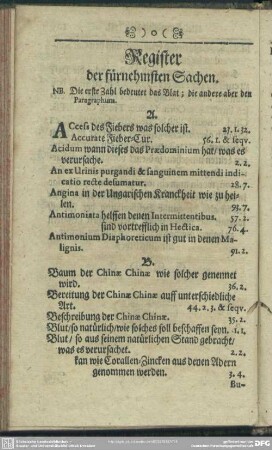 )o(
Register
der fürnehmsten Sachen.
NB. Die erste Zahl bedeutet das Blat; die andere aber den
Paragraphum.
A.
Access des Fiebers was solcher ist. 23. 1. 32.
Accurate Fieber-Cur. 56. 1. & seqv.
Acidum wann dieses das Prædominium hat/ was es
verursache. 2. 2.
An ex Urinis purgandi & sanguinem mittendi indi-
catio recte desumatur. 28. 7.
Angina in der Ungarischen Kranckheit wie zu hei-
len. 93. 7.
Antimoniata helffen denen Intermitentibus. 57. 2.
sind vortrefflich in Hectica. 76. 4.
Antimonium Diaphoreticum ist gut in denen Ma-
lignis. 91. 2.
B.
Baum der Chinæ Chinæ wie solcher genennet
wird. 36. 2.
Bereitung der Chinæ Chinæ auff unterschiedliche
Art. 44. 2. 3. & seqv.
Beschreibung der Chinæ Chinæ. 35. 2.
Blut/ so natürlich/ wie solches soll beschaffen seyn. 1. 1.
Blut/ so aus seinem natürlichen Stand gebracht/
was es verursachet. 2. 2.
kan wie Corallen-Zincken aus denen Adern
genommen werden. 3. 4.
Bu-